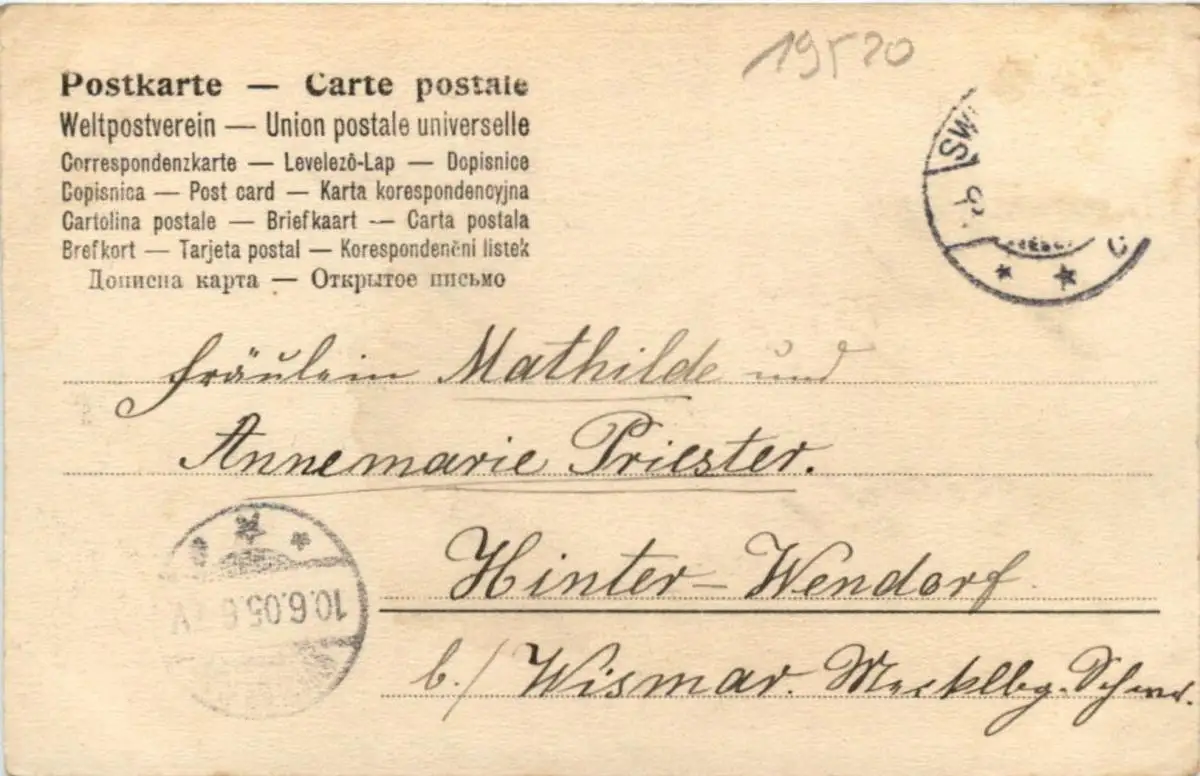 19520
Postkarte — Carte postale
Weltpostverein — Union postale universelle
Correspondenzkarte — Levelezõ-Lap — Dopisnice
Dopisnica — Post card — Karta korespondencyjna
Cartolina postale — Briefkaart — Carta postala
Brefkort — Tarjeta postal — Korespondenčni listek
Дописна карта — Открытое письмо
SW
Fräulein Mathilde und
Annemarie Priester.
Hinter-Wendorf
10.6.05.6
b./ Wismar. Mecklbg. Schwer.